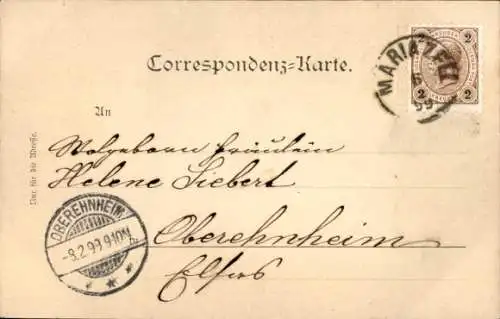 Correspondenz=Karte.
2 2
MARIAZELL
99
2 2
An
Wolgeborn Fräulein
Helene Siebert
Oberehnheim
Elsass
OBEREHNHEIM
-8.2.99.9-10N.
* * *
Nur für die Adresse.